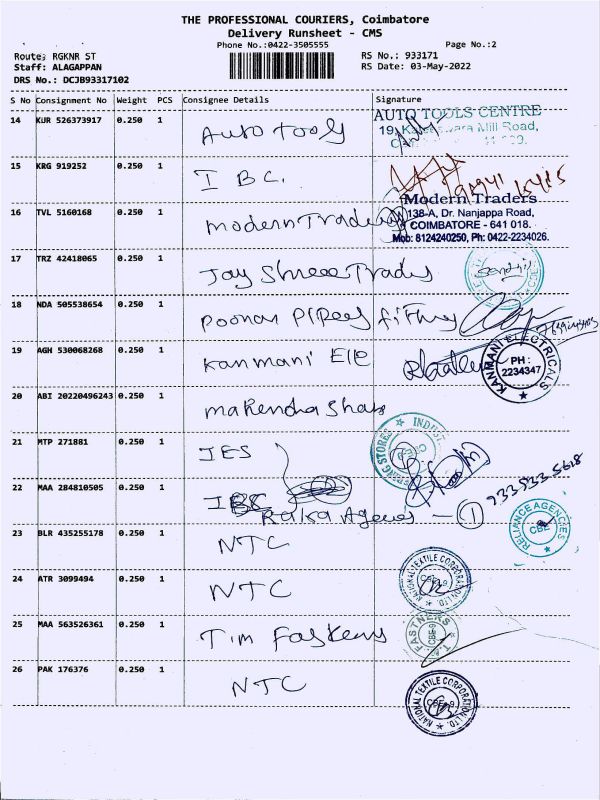 THE PROFESSIONAL COURIERS, Coimbatore
Delivery Runsheet - CMS
Phone No.:0422-3505555
Page No.:2
Route: RGKNR ST
RS No.: 933171
Staff: ALAGAPPAN
RS Date: 03-May-2022
DRS No.: DCJB93317102
S No Consignment No Weight PCS Consignee Details Signature
14 KUR 526373917 0.250 1 Auto tools
AUTO TOOLS CENTRE
Mill Road,
15 KRG 919252 0.250 1 IBC.
16 TVL 5160168 0.250 1 Modern Traders
Modern Traders
138-A, Dr. Nanjappa Road,
COIMBATORE - 641 018.
Mob: 8124240250, Ph: 0422-2234026.
17 TRZ 42418065 0.250 1 Jay Shree Trades
18 NDA 505538654 0.250 1 Poonam Pipes fitting
19 AGH 530068268 0.250 1 Kanmani Ele
KANMANI ELECTRICALS
PH :
2234347
20 ABI 20220496243 0.250 1 Mahendra Shah
21 MTP 271881 0.250 1 IES
22 MAA 284810505 0.250 1
Raka Agencies - 1 9335335618
RELIANCE AGENCIES
CBE
23 BLR 435255178 0.250 1 NTC
24 ATR 3099494 0.250 1 NTC
NATIONAL TEXTILE CORPORATION LTD.
CBE-9
25 MAA 563526361 0.250 1 Tim Fasteners
FASTNERS
CBE-9
26 PAK 176376 0.250 1 NTC
NATIONAL TEXTILE CORPORATION LTD.